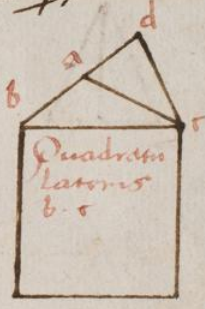 d
a
b
c
Quadratu
lateris
b. c